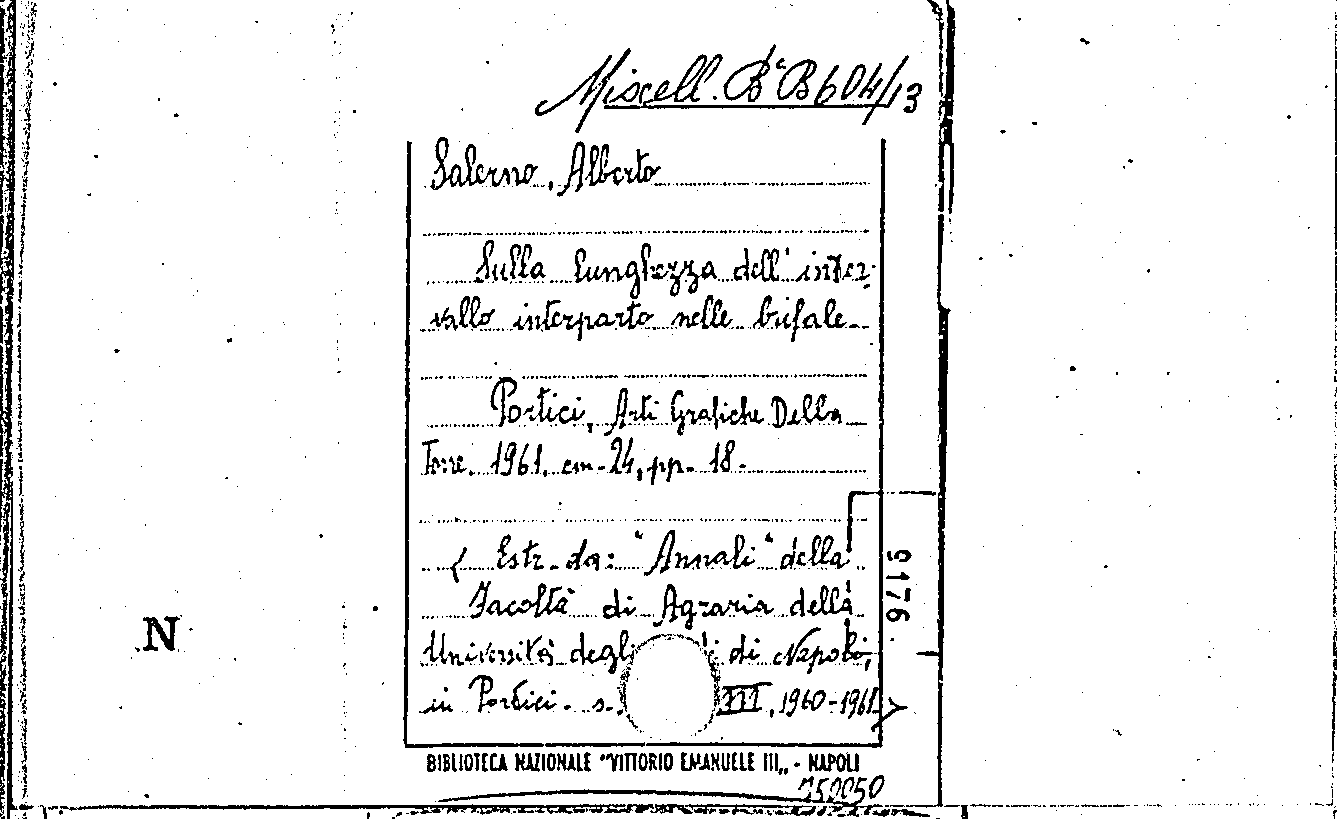 Miscell. B. B 604/13
Salerno, Alberto
Sulla lunghezza dell'inter-
vallo interparto nelle bufale.
Portici, Arti Grafiche Della
Torre. 1961. cm. 24, pp. 18.
( Estr. da: "Annali" della
Facoltà di Agraria della
9176
Università degli di di Napoli,
N
in Portici. s. III, 1960-1961)
BIBLIOTECA NAZIONALE "VITTORIO EMANUELE III„ - NAPOLI